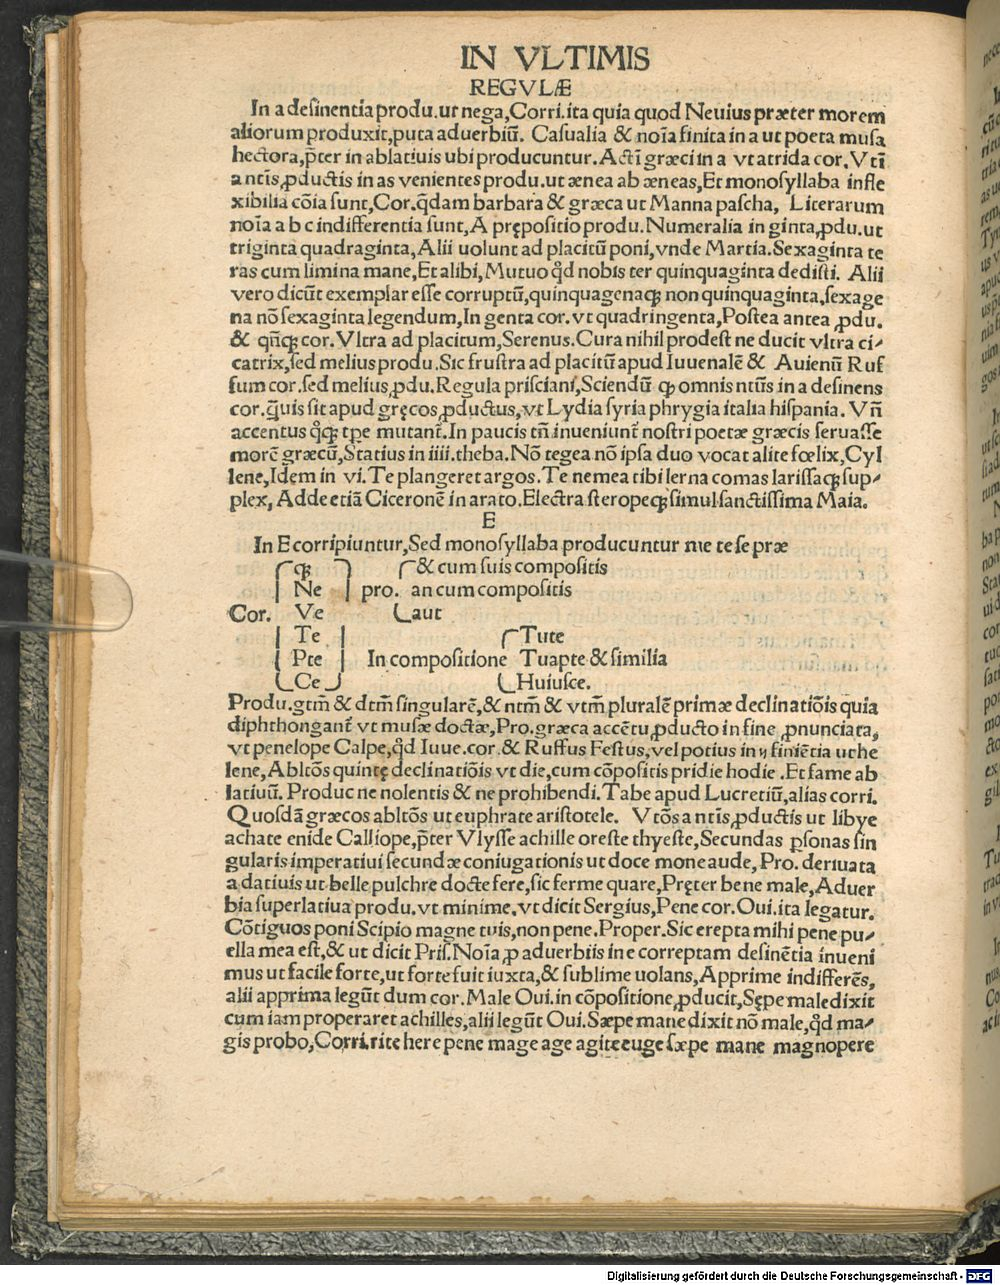 IN VLTIMIS
REGVLÆ
In a desinentia produ. ut nega, Corri. ita quia quod Neuius præter morem
aliorum produxit, puta aduerbiũ. Casualia & noĩa finita in a ut poeta musa
hectora, p̃ter in ablatiuis ubi producuntur. Actĩ græci in a vt atrida cor. Vtĩ
a ntĩs ꝓductis in as venientes produ. ut ænea ab æneas, Et monosyllaba infle
xibilia cõia sunt, Cor. q̃dam barbara & græca ut Manna pascha, Literarum
noĩa a b c indifferentia sunt, A prępositio produ. Numeralia in ginta ꝓdu. ut
triginta quadraginta, Alii uolunt ad placitũ poni, vnde Martia. Sexaginta te
ras cum limina mane, Et alibi, Mutuo qđ nobis ter quinquaginta dedisti. Alii
vero dicũt exemplar esse corruptũ, quinquagenaqꝫ non quinquaginta, sexage
na nõ sexaginta legendum, In genta cor. vt quadringenta, Postea antea ꝓdu.
& qñqꝫ cor. Vltra ad placitum, Serenus. Cura nihil prodest ne ducit vltra ci-
catrix, sed melius produ. Sic frustra ad placitũ apud Iuuenalẽ & Auienũ Ruf
fum cor. sed melius ꝓdu. Regula prisciani, Sciendũ ꝙ omnis ntũs in a desinens
cor. q̃uis sit apud gręcos ꝓductus, vt Lydia syria phrygia italia hispania. Vñ
accentus q̊qꝫ tp̃e mutant̃. In paucis tñ inueniunt̃ nostri poetæ græcis seruasse
morẽ græcũ, Statius in iiii. theba. Nõ tegea nõ ipsa duo vocat alite fœlix, Cyl
lene, Idem in vi. Te plangeret argos. Te nemea tibi lerna comas larissaqꝫ sup-
plex, Adde etiã Ciceronẽ in arato. Electra steropeqꝫ simul sanctissima Maia.
E
In E corripiuntur, Sed monosyllaba producuntur me te se præ
qꝫ & cum suis compositis
Ne pro. an cum compositis
Cor. Ve aut
Te Tute
Pte In compositione Tuapte & similia
Ce Huiusce.
Produ. gtm̃ & dtm̃ singularẽ, & ntm̃ & vtm̃ pluralẽ primæ declinatiõis quia
diphthongant̃ vt musæ doctæ, Pro. græca accẽtu ꝓducto in fine ꝓnunciata,
vt penelope Calpe, qđ Iuue. cor. & Ruffus Festus, vel potius in η finiẽtia ut he
lene, Abltõs quintę declinatiõis vt die, cum cõpositis pridie hodie. Et fame ab
latiuũ. Produc ne nolentis & ne prohibendi. Tabe apud Lucretiũ, alias corri.
Quosdã græcos abltõs ut euphrate aristotele. Vtõs a ntĩs ꝓductis ut libye
achate enide Calliope, p̃ter Vlysse achille oreste thyeste, Secundas ꝑsonas sin
gularis imperatiui secundæ coniugationis ut doce mone aude, Pro. deriuata
a datiuis ut belle pulchre docte fere, sic ferme quare, Pręter bene male, Aduer
bia superlatiua produ. vt minime. vt dicit Sergius, Pene cor. Oui. ita legatur.
Cõtiguos poni Scipio magne tuis, non pene. Proper. Sic erepta mihi pene pu-
ella mea est, & ut dicit Pris. Noĩa ꝓ aduerbiis in e correptam desinẽtia inueni
mus ut facile forte, ut forte fuit iuxta, & sublime uolans, Apprime indifferẽs,
alii apprima legũt dum cor. Male Oui. in cõpositione ꝓducit, Sępe maledixit
cum iam properaret achilles, alii legũt Oui. Sæpe mane dixit nõ male, qđ ma-
gis probo, Corri. rite here pene mage age agite euge sæpe mane magnopere
Digitalisierung gefördert durch die Deutsche Forschungsgemeinschaft - DFG